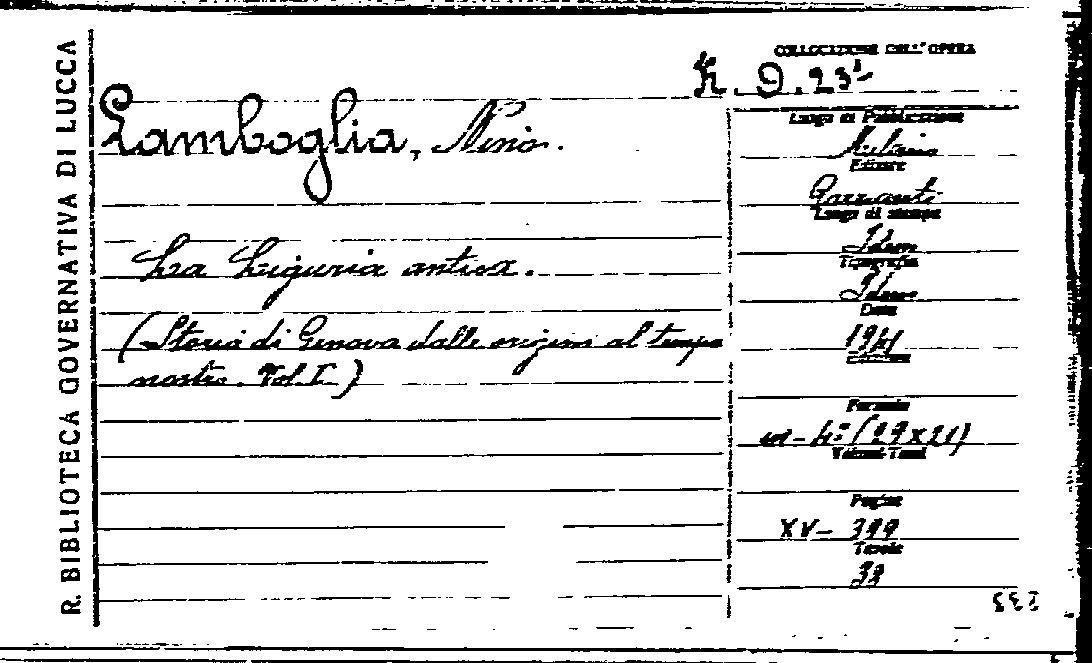 R. BIBLIOTECA GOVERNATIVA DI LUCCA
COLLOCAZIONE DELL'OPERA
Lamboglia, Nino.
La Liguria antica.
(Storia di Genova dalle origini al tempo
nostro. Vol. I.)
Luogo di Pubblicazione
Milano
Editore
Garzanti
Luogo di stampa
Idem
Tipografia
Idem
Data
1941
Edizione
Formato
in-4° (29x21)
Volumi-Tomi
Pagine
XV-399
Tavole